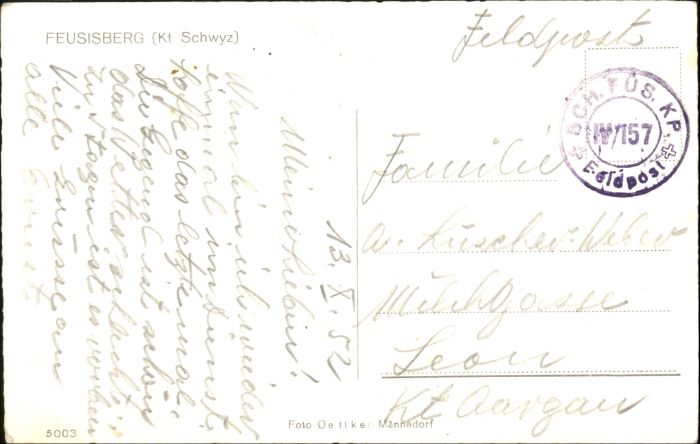 FEUSISBERG (Kt Schwyz)
Feldpost
SCH. FÜS. KP.
IV/157
Feldpost
13. X. 52
Meine Lieben!
Nun bin ich wieder
einmal im Dienst
hoffe das letzte mal.
Die Gegend ist schön
das Wetter schlecht
In 8 Tagen ist es vorbei
Viele Grüsse an
alle Ernst
Familie
A. Lüscher-Weber
Milchgasse
Seon
Kt Aargau
Foto Oetiker Männedorf
5003